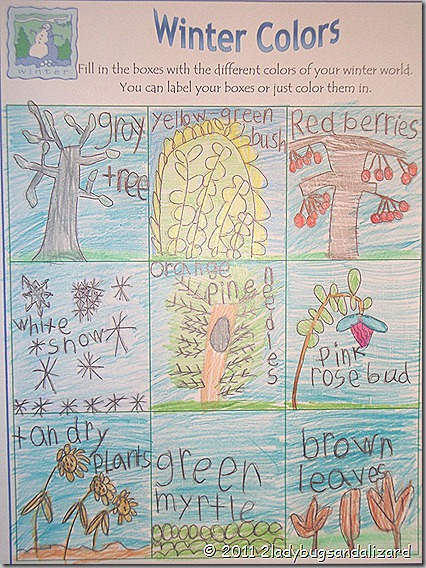 Winter Colors
winter
Fill in the boxes with the different colors of your winter world.
You can label your boxes or just color them in.
gray
tree
yellow-green
bush
Red berries
white
snow
orange
pine
needles
pink
rosebud
tan dry
plants
green
myrtle
brown
leaves
© 2011 2ladybugsandalizard